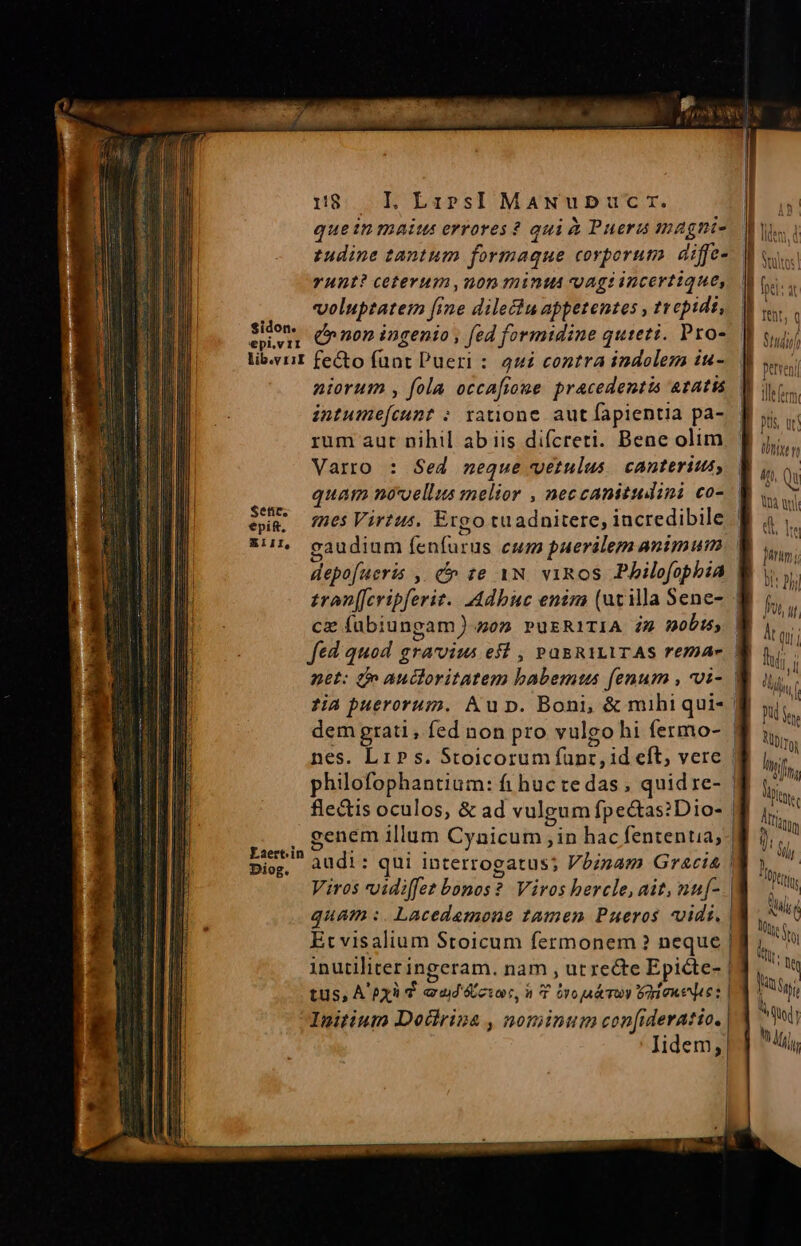 118 I. LipsI Manuduct.
que in maius errores? qui à Pueris magni-
tudine tantum formaque corporum diffe-
runt? ceterum, non minus vagi incertique,
voluptatem sine dilectu appetentes, trepidi,
Sidon. epi. VII lib. VIII
& non ingenio, sed formidine quieti. Pro-
fecto sunt Pueri: qui contra indolem iu-
niorum, sola occasione praecedentis aetatis
intumescunt: ratione aut sapientia pa-
rum aut nihil ab iis discreti. Bene olim
Varro: Sed neque vetulus canterius,
quam novellus melior, nec canitudini co-
Senec. epist. XIIII,
mes Virtus. Ergo tu adnitere, incredibile
gaudium sensurus cum puerilem animum
deposueris, & te IN VIROS Philosophia
transscripserit. Adhuc enim (ut illa Sene-
cæ subiungam) non PUERITIA in nobis,
sed quod gravius est, PUERILITAS rema-
net: & auctoritatem habemus senum, vi-
tia puerorum. AUD. Boni, & mihi qui-
dem grati, sed non pro vulgo hi sermo-
nes. LIPS. Stoicorum sunt, id est, vere
philosophantium: si huc te das, quid re-
flectis oculos, & ad vulgum spectas? Dio-
genem illum Cynicum, in hac sententia,
Laert. in Diog.
audi: qui interrogatus; Vbinam Græciæ
Viros vidisset bonos? Viros hercle, ait, nus-
quam: Lacedæmone tamen Pueros vidi.
Et vis alium Stoicum sermonem? neque
inutiliter ingeram. nam, ut recte Epicte-
tus, Ἀρχὴ τ̃ παιδεύσεως, ἡ τ̃ ὀνομάτων ἐπίσκεψις:
Initium Doctrinæ, nominum consideratio.
Iidem,